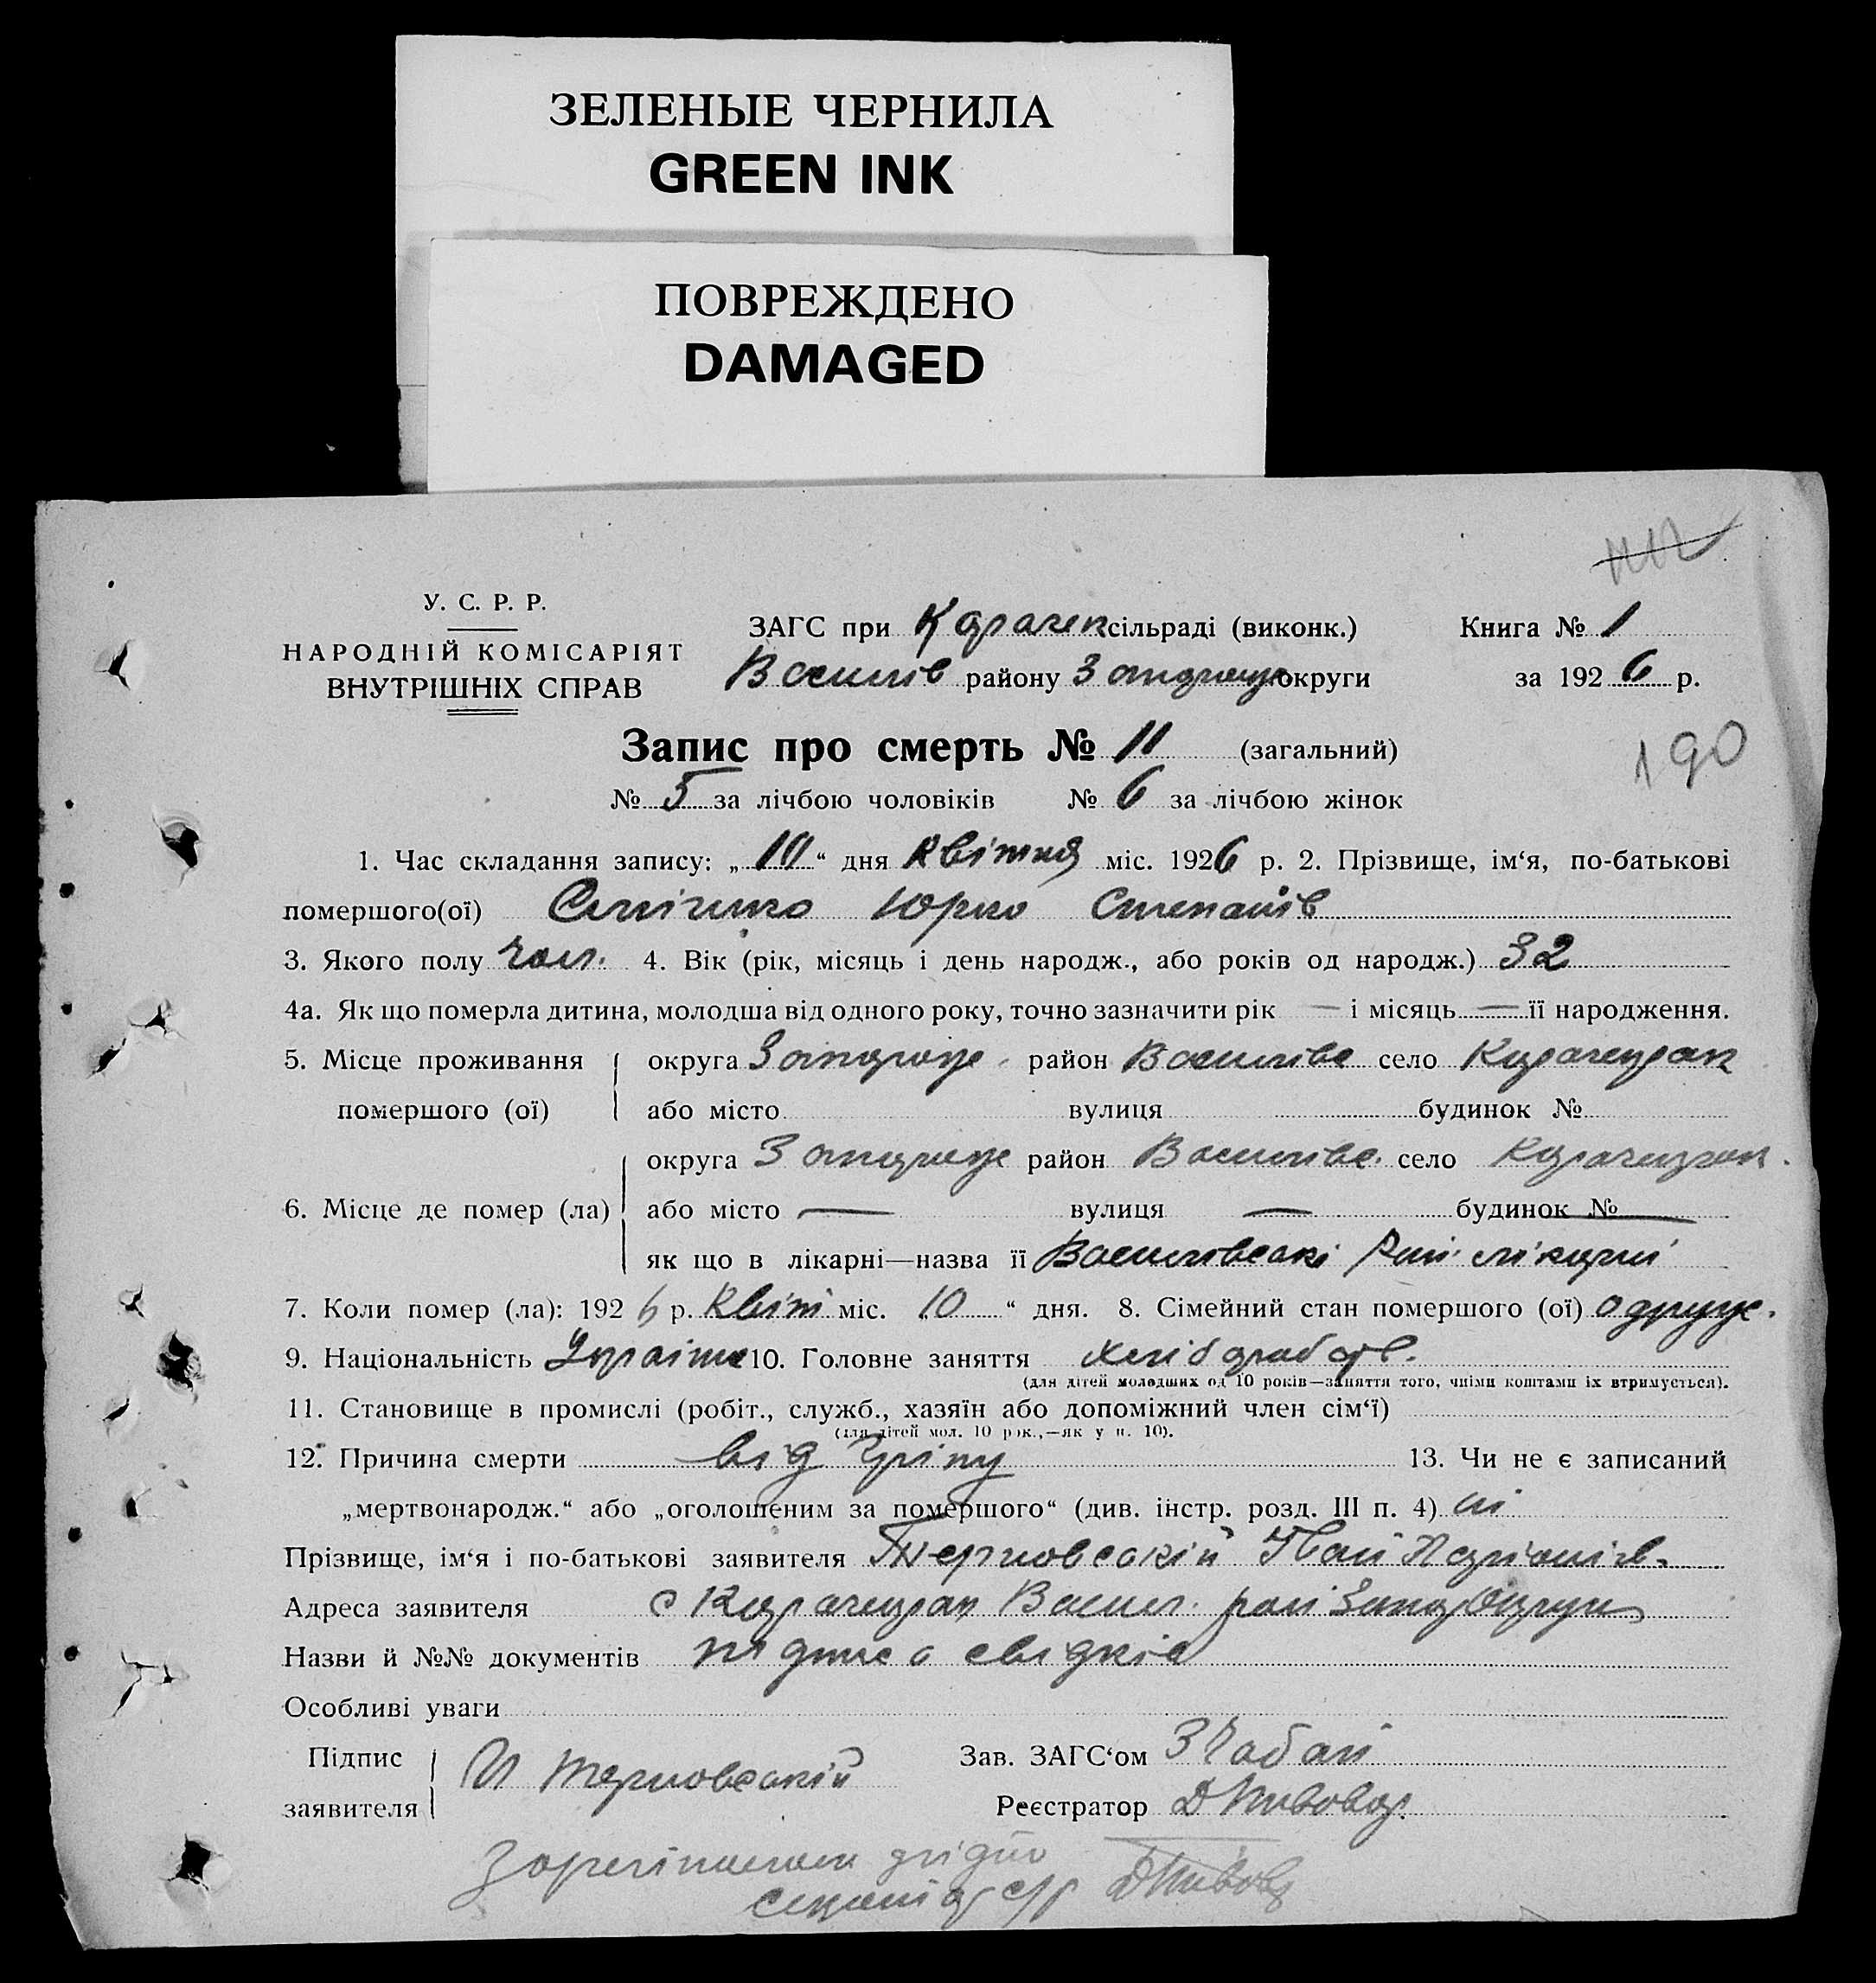 ЗЕЛЕНЫЕ ЧЕРНИЛА
GREEN INK
ПОВРЕЖДЕНО
DAMAGED
У. С. Р. Р.
НАРОДНІЙ КОМІСАРІЯТ
ВНУТРІШНІХ СПРАВ
ЗАГС при сільраді (виконк.)
Василів району Запоріж округи
Книга № 1
за 1926 р.
Запис про смерть № 11 (загальний)
190
№ 5 за лічбою чоловіків № 6 за лічбою жінок
1. Час складання запису: „10“ дня Квітня міс. 1926 р. 2. Прізвище, ім‘я, по-батькові
помершого(ої) Юрко Степанів
3. Якого полу чол. 4. Вік (рік, місяць і день народж., або років од народж.) 32
4а. Як що померла дитина, молодша від одного року, точно зазначити рік — і місяць — її народження.
5. Місце проживання округа район Василівс село
помершого (ої) або місто вулиця будинок №
округа район Василівс. село
6. Місце де помер (ла) або місто — вулиця — будинок № —
як що в лікарні—назва її Василівські Рай лікарні
7. Коли помер (ла): 1926 р. Квіт міс. 10 “ дня. 8. Сімейний стан помершого (ої) одруж.
9. Національність Україне 10. Головне заняття хліборобств.
(для дітей молодших од 10 років—заняття того, чиїми коштами їх втримується).
11. Становище в промислі (робіт., служб., хазяїн або допоміжний член сім‘ї)
(для дітей мол. 10 рок.,—як у п. 10).
12. Причина смерти від Гріпу 13. Чи не є записаний
„мертвонародж.“ або „оголошеним за помершого“ (див. інстр. розд. III п. 4) ні
Прізвище, ім‘я і по-батькові заявителя Терновський Іван
Адреса заявителя с Васил. рай Запор Округи
Назви й №№ документів підписа свідків
Особливі уваги
Підпис заявителя И Терновський
Зав. ЗАГС‘ом З Чабан
Реєстратор Д Пивовар
згідно
Д Пивов